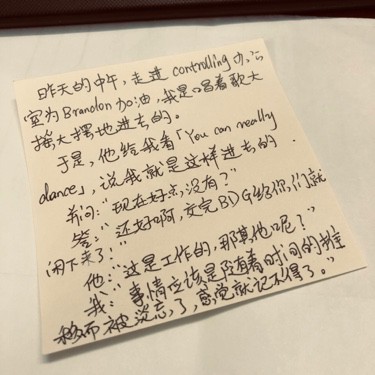 昨天的中午，走进 controlling 办公
室为 Brandon 加油，我是唱着歌大
摇大摆地进去的。
于是，他给我看「You can really
dance」，说我就是这样进去的.
并问：“现在好点没有？”
答：“还好啊，交完BDG给你，们就
闲下来了”
他：“这是工作的，那其他呢？”
我：“事情应该是随着时间的推
移而被淡忘了，感觉就记不得了。”